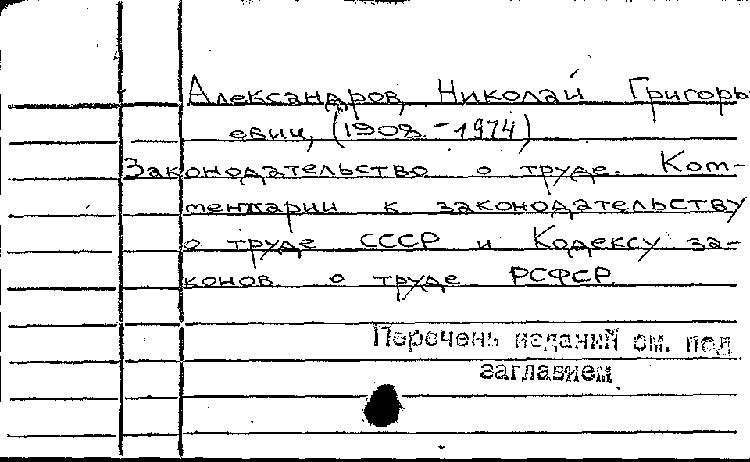 Александров, Николай Григорь
евич, (1908-1974)
Законодательство о труде. Ком-
ментарии к законодательству
о труде СССР и Кодексу за-
конов о труде РСФСР.
Перечень изданий см. под
заглавием